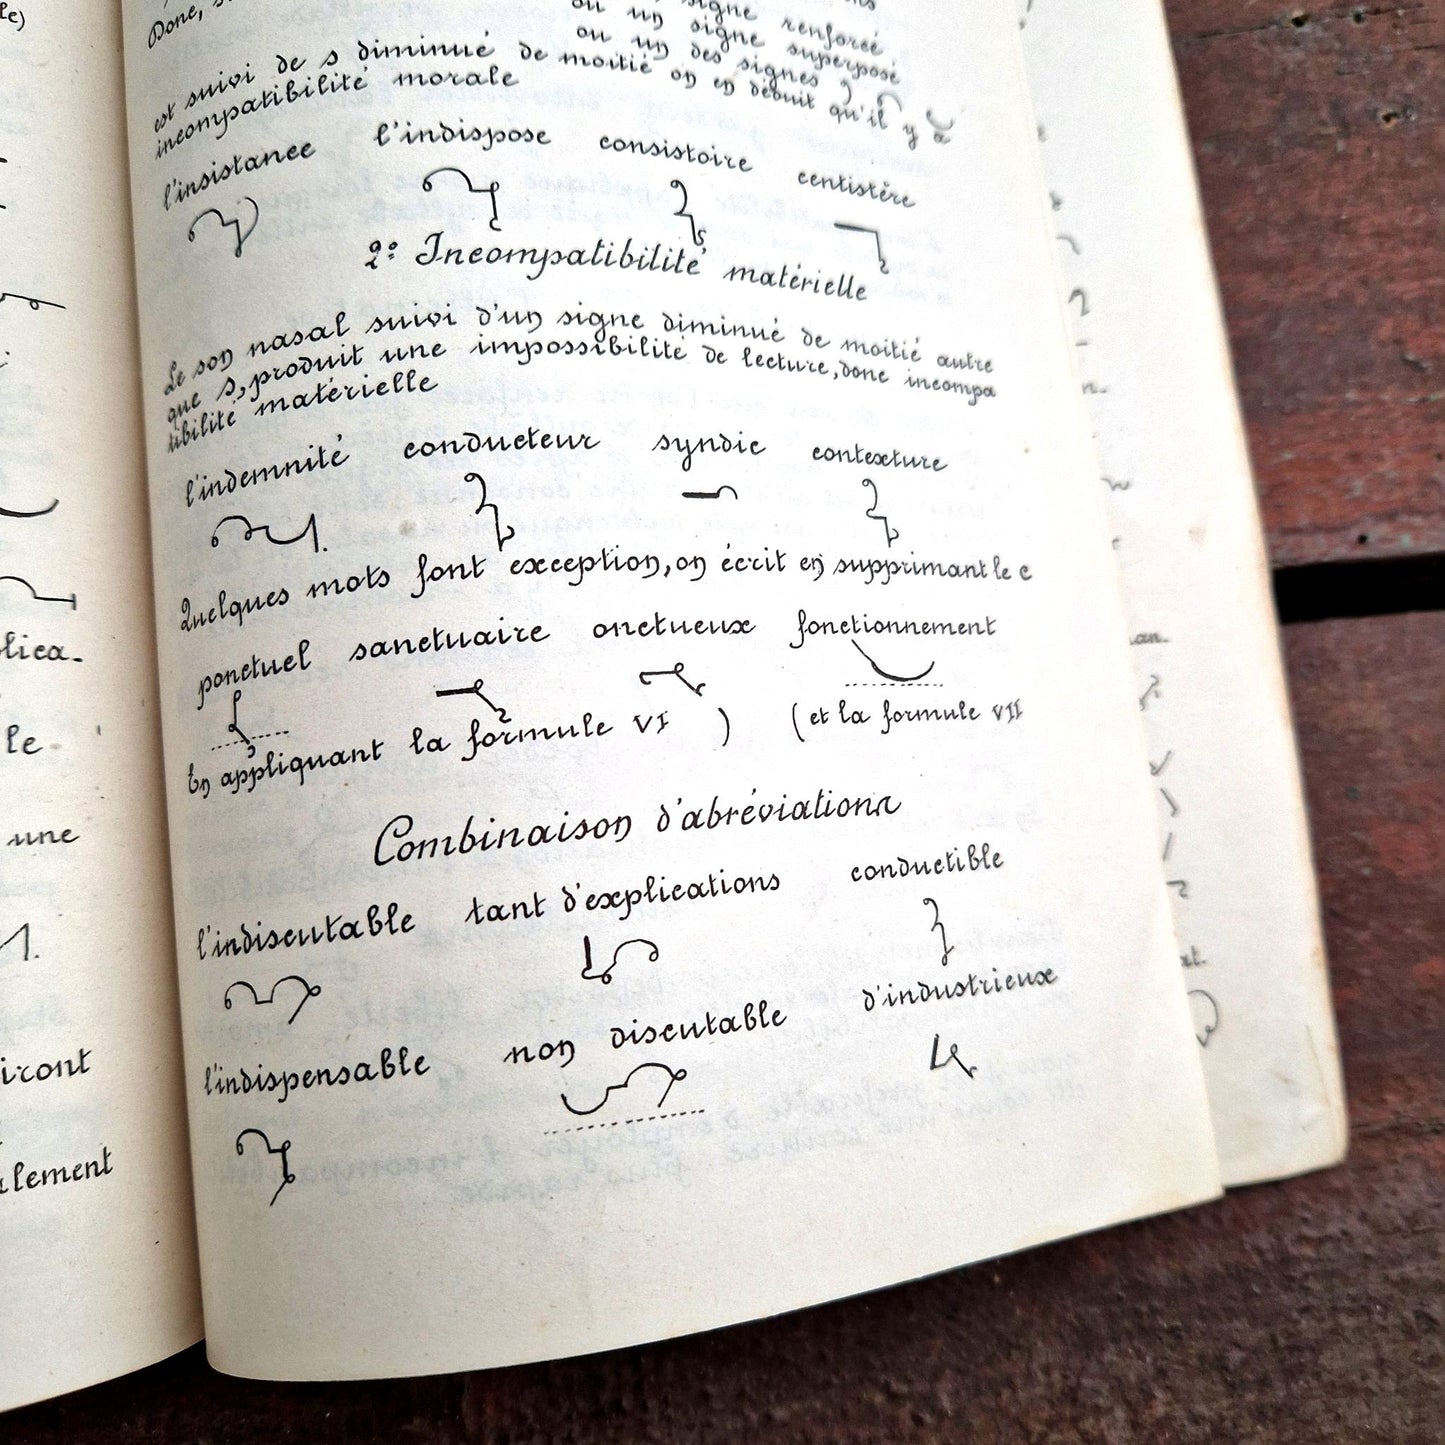 le)
plica-
le
une
iront
alement
Donc,
signe renforcé
ou un signe superposé
ou un des signes
est suivi de s diminué de moitié on en déduit qu'il y a
incompatibilité morale
l'insistance l'indispose consistoire centistère
2º Incompatibilité matérielle
Le son nasal suivi d'un signe diminué de moitié autre
que s, produit une impossibilité de lecture, donc incompa
tibilité matérielle
l'indemnité conducteur syndic contexture
Quelques mots font exception, on écrit en supprimant le c
ponctuel sanctuaire onctueux fonctionnement
En appliquant la formule VI ) (et la formule VII
Combinaison d'abréviations
l'indiscutable tant d'explications conductible
l'indispensable non discutable d'industrieux